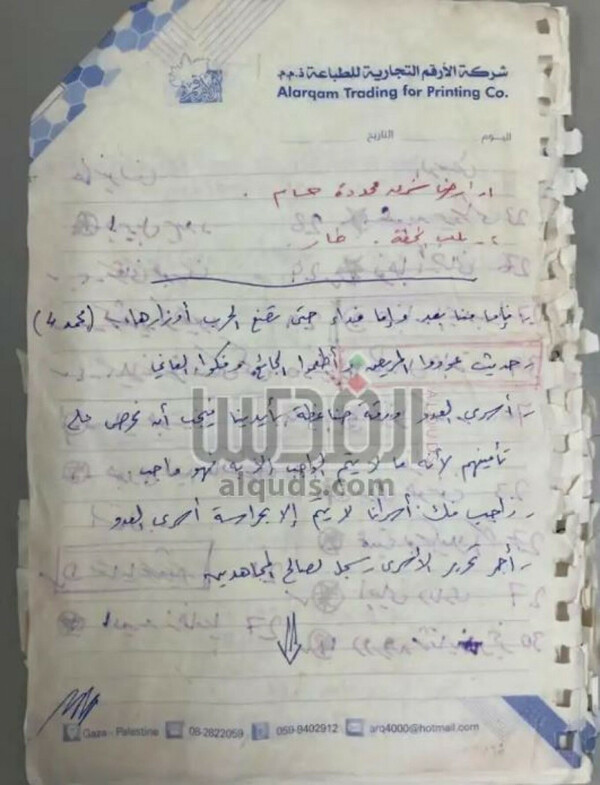 شركة الأرقم التجارية للطباعة ذ.م.م
Alarqam Trading for Printing Co.
اليوم التاريخ
محدودة
فإما منا بعد وإما فداء حتى تضع الحرب أوزارها (محمد 4)
حديث عودوا المريض وأطعموا الجائع وفكوا العاني
أسرى العدو ورقة ضاغطة بأيدينا فيجب أن نحرص على
تأمينهم لأنه ما لا يتم الواجب إلا به فهو واجب
وواجب فك أسرانا لا يتم إلا بحراسة أسرى العدو
وأجر تحرير الأسرى يسجل لصالح المجاهدين
القدس
ALQUDS
alquds.com
Gaza - Palestine 08-2822059 059-9402912 arq4000@hotmail.com